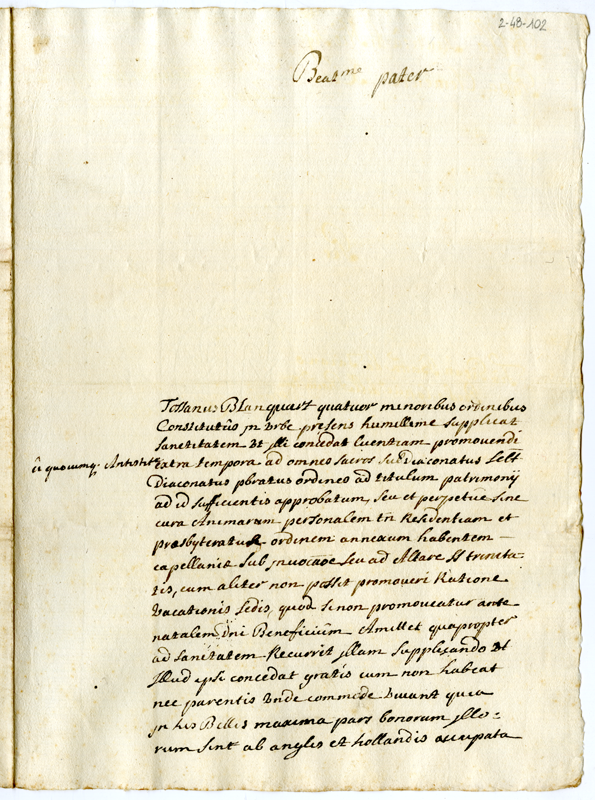 2-48-102
Beat.me pater
Tossanus Blanquart quatuor minoribus ordinibus
Constitutus jn Vrbe presens humillime supplicat
Sanctitatem Vt jlli concedat licentiam promovendi
à quocumq. Antistite
extra tempora ad omnes sacros subdiaconatus
Diaconatus pbratus ordines ad titulum patrimonij
ad id sufficientis approbatum, seu et perpetue sine
cura Animarum personalem tn Residentiam et
presbyteratus ordinem annexum habentem
capellaniæ sub jnvocãoe seu ad Altare SS trinita-
tis, cum aliter non possit promoveri Ratione
Vacationis sedis, quod si non promoveatur ante
natalem Dni Beneficium Amittet quapropter
ad sanctitatem Recurrit jllam supplicando Vt
jllud ipsi concedat gratis cum non habeat
nec parentis Vnde commode Vivant quia
jn his Bellis maxima pars bonorum jllo-
rum sint ab anglis et hollandis occupata